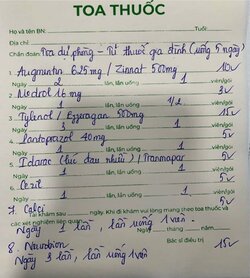 TOA THUỐC
Họ và tên BN: Tuổi:
Địa chỉ:
Chẩn đoán: Toa dự phòng - Tủ thuốc gia đình (uống 5 ngày)
1. Augmentin 625mg / Zinnat 500mg 10v
Ngày 2 lần, lần uống 1 viên/gói
2. Medrol 16 mg 3v
Ngày 1 lần, lần uống 1/2 viên/gói
3. Tylenol / Efferagan 500mg 15v
Ngày 3 lần, lần uống 1 viên/gói
4. Pantoprazol 40mg 5v
Ngày 1 lần, lần uống 1 viên/gói
5. Idarac (lúc đau nhiều) / Tranmapar 5v
Ngày 1 lần, lần uống 1 viên/gói
6. Cezil 5v
Ngày 1 lần, lần uống 1 viên/gói
7. Calci 5v
Tái khám sau ngày. Khi đi khám vui lòng mang theo toa thuốc và
các xét nghiệm liên quan
Ngày 1 lần, lần uống 1 viên
Ngày tháng năm
8. Neurobion Bác sĩ điều trị 15v
Ngày 3 lần, lần uống 1 viên